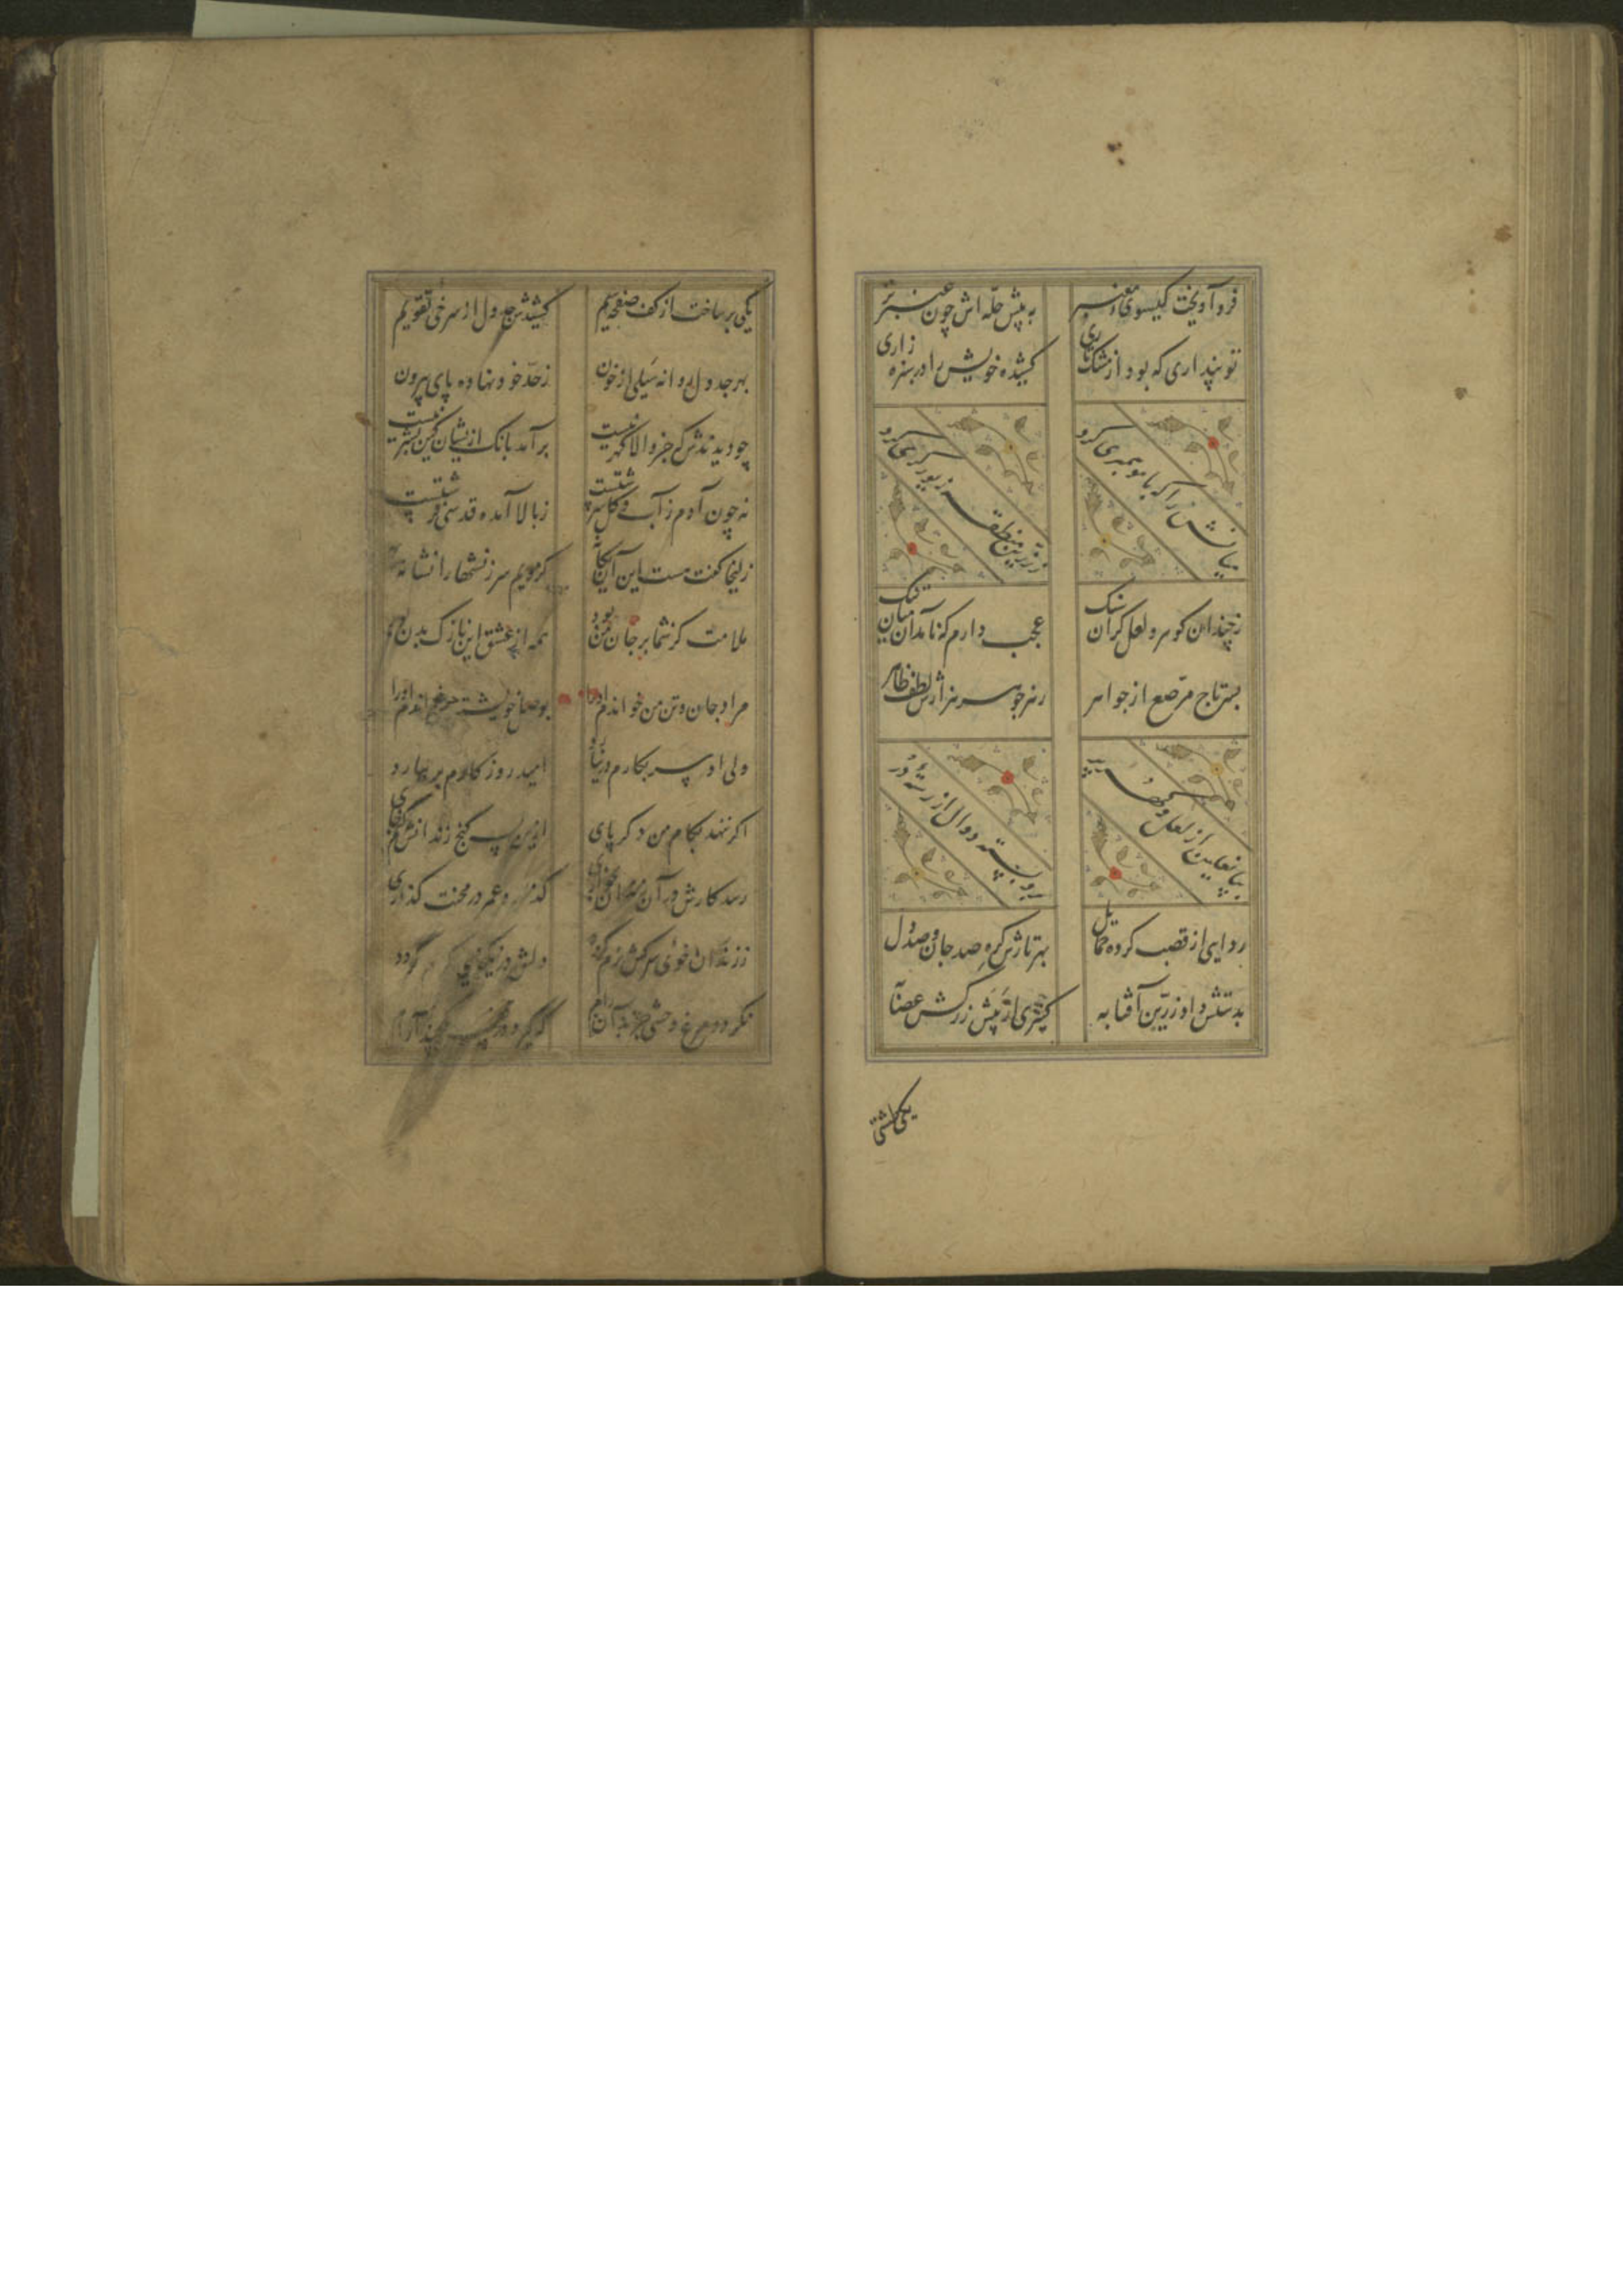 فرو آویخت گیسوی معنبر
به پیش حله اش چون عنبر تر
تو پنداری که بود از مشک ماری
کشیده خویش را در سبزه زاری
میانش را که با مو همسری کرد
ز زرین منطقه زیور گری کرد
ز چندان گوهر و لعل گران سنگ
عجب دارم که نامد آن میان تنگ
بسر تاج مرصع از جواهر
ز هر جوهر هزارش لطف ظاهر
بپا نعلین از لعل و گهر پر
برو بسته دوال از رشته در
ردایی از قصب کرده حمایل
بهر تارش گره صد جان و صد دل
بدستش داد زرین آفتابه
کنیزی از پیش زرکش عصابه
یکی
یکی بر ساخت از کف صفحه سیم
کشیدش جدول از سرخی تقویم
بهر جدول روانه سیلی از خون
ز حد خود نهاده پای بیرون
چو دیدندش که جز والا گهر نیست
بر آمد بانگ ازیشان کین بشر نیست
نه چون آدم ز آب و گل سرشتست
ز بالا آمده قدسی فرشتست
زلیخا گفت هست این آن یگانه
کزویم سرزنشها را نشانه
ملامت کز شما بر جان من بود
همه از عشق این نازک بدن بود
مراد جان و تن من خواندم او را
بوصل خویشتن من خواندم او را
ولی او سر بکارم در نیارد
امید روزگارم بر نیارد
اگر ننهد بکام من دگر پای
ازین پس کنج زندان سازمش جای
رسد کارش در آن زندان بخواری
گذارد عمر در محنت گذاری
ز زندان خوی سرکش نرم گردد
دلش در نیکخویی گرم گردد
نگردد مرغ وحشی جز بدان رام
که گیرد در قفس یکچند آرام